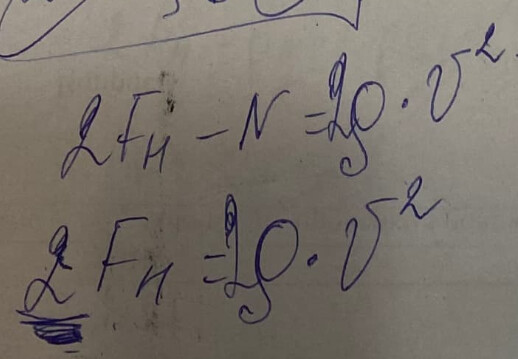 2Fн - N = 2ρ · v²
2Fн = 2ρ · v²